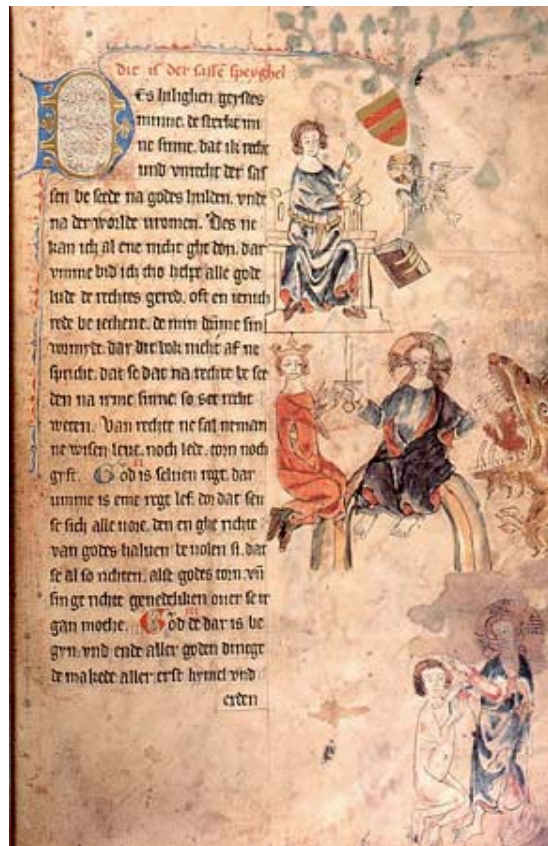 dit is der sassē speyghel
Des hilighen geystes
minne. de sterke mi
ne sinne. dat ik recht
und vnrecht der sas
sen be scede na godes hulden. vnde
na der worlde vromen. Des ne
kan ich al ene nicht ghe don. dar
vmme bid ich tho helpe alle gode
lude de rechtes gered. oft en ienich
rede be ieghene. de min dumme sin
vormyde. dar dit bok nicht af ne
spricht. dat se dat na rechte be sce
den na irme sinne. so set recht
weten. Van rechte ne sal neman
ne wisen leue. noch lede. torn noch
gyft. God is selven regt. dar
umme is eme regt lef. don dat seu
se sich alle vore. den en ghe richte
van godes haluen be uolen si. dat
se al so richten. alse godes torn. vñ
sin ge richte genedeliken ouer se ir
gan mothe. God de dar is be
gyn. vnd ende aller goden dinege
de makede aller erst hymel vnd
erden